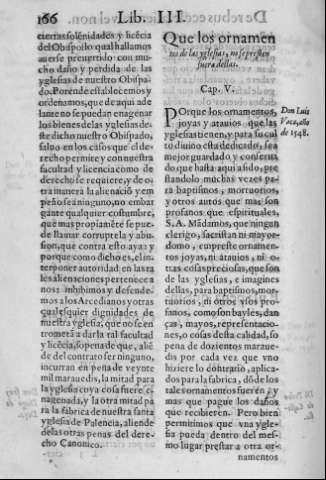 166 Lib. III.
ciertas solenidades y licēcia
del Obispo lo qual hallamos
auerse preuertido con mu-
cho daño y perdida de las
yglesias de nuestro Obispa-
do. Porende establecemos y
ordenamos, que de aqui ade
lante no se puedan enagenar
los bienes de las yglesias de-
ste dicho nuestro Obispado,
saluo en los casos que el de-
recho permite y con nuestra
facultad y licencia como de
derecho se requiere, y de o-
tra manera la alienaciō y em
peño sea ninguno, no embar
gante qualquier costumbre,
que mas propiamēte se pue-
de llamar corruptela y abu-
sion, que contra esto aya: y
porque como dicho es, el in-
terponer autoridad en las ta
les alienaciones pertenece a
nos: inhibimos y defende-
mos a los Arcedianos y otras
qualesquier dignidades de
nuestra yglesia, que no se en
trometā a darla tal facultad
y licēcia, so pena de que, allē
de del contrato ser ninguno,
incurran en pena de veynte
mil marauedis, la mitad para
la yglesia cuya cosa fuere e-
nagenada, y la otra mitad pa
ra la fabrica de nuestra santa
yglesia de Palencia, aliende
de las otras penas del dere-
cho Canonico.
Que los ornamen
tos de las yglesias, no se presten
fuera dellas.
Cap. V.
Don Luis
Vaca, año
de 1548.
PORque los ornamentos,
joyas y atauios que las
yglesias tienen, y para su cul
to diuino esta dedicado, sea
mejor guardado y conserua
do que hasta aqui a sido, pre
standolo muchas vezes pa-
ra baptismos, mortuorios,
y otros autos que mas son
profanos que espirituales,
S. A. Mādamos, que ningun
clerigo, sacristan ni mayor-
domo, empreste ornamen-
tos joyas, ni atauios, ni o-
tras cosas preciosas, que son
de las yglesias, e imagines
dellas, para baptismos, mor-
tuorios, ni otros vsos pro-
fanos, como son bayles, dan
ças, mayos, representacio-
nes, o cosas desta calidad, so
pena de dozientos maraue-
dis por cada vez que vno
hiziere lo contrario, aplica-
dos para la fabrica, dōde los
tales ornamentos fuerēn: y
mas que pague los daños
que recibieren. Pero bien
permitimos que vna ygle-
sia pueda dentro del mes-
mo lugar prestar a otra or-
namentos